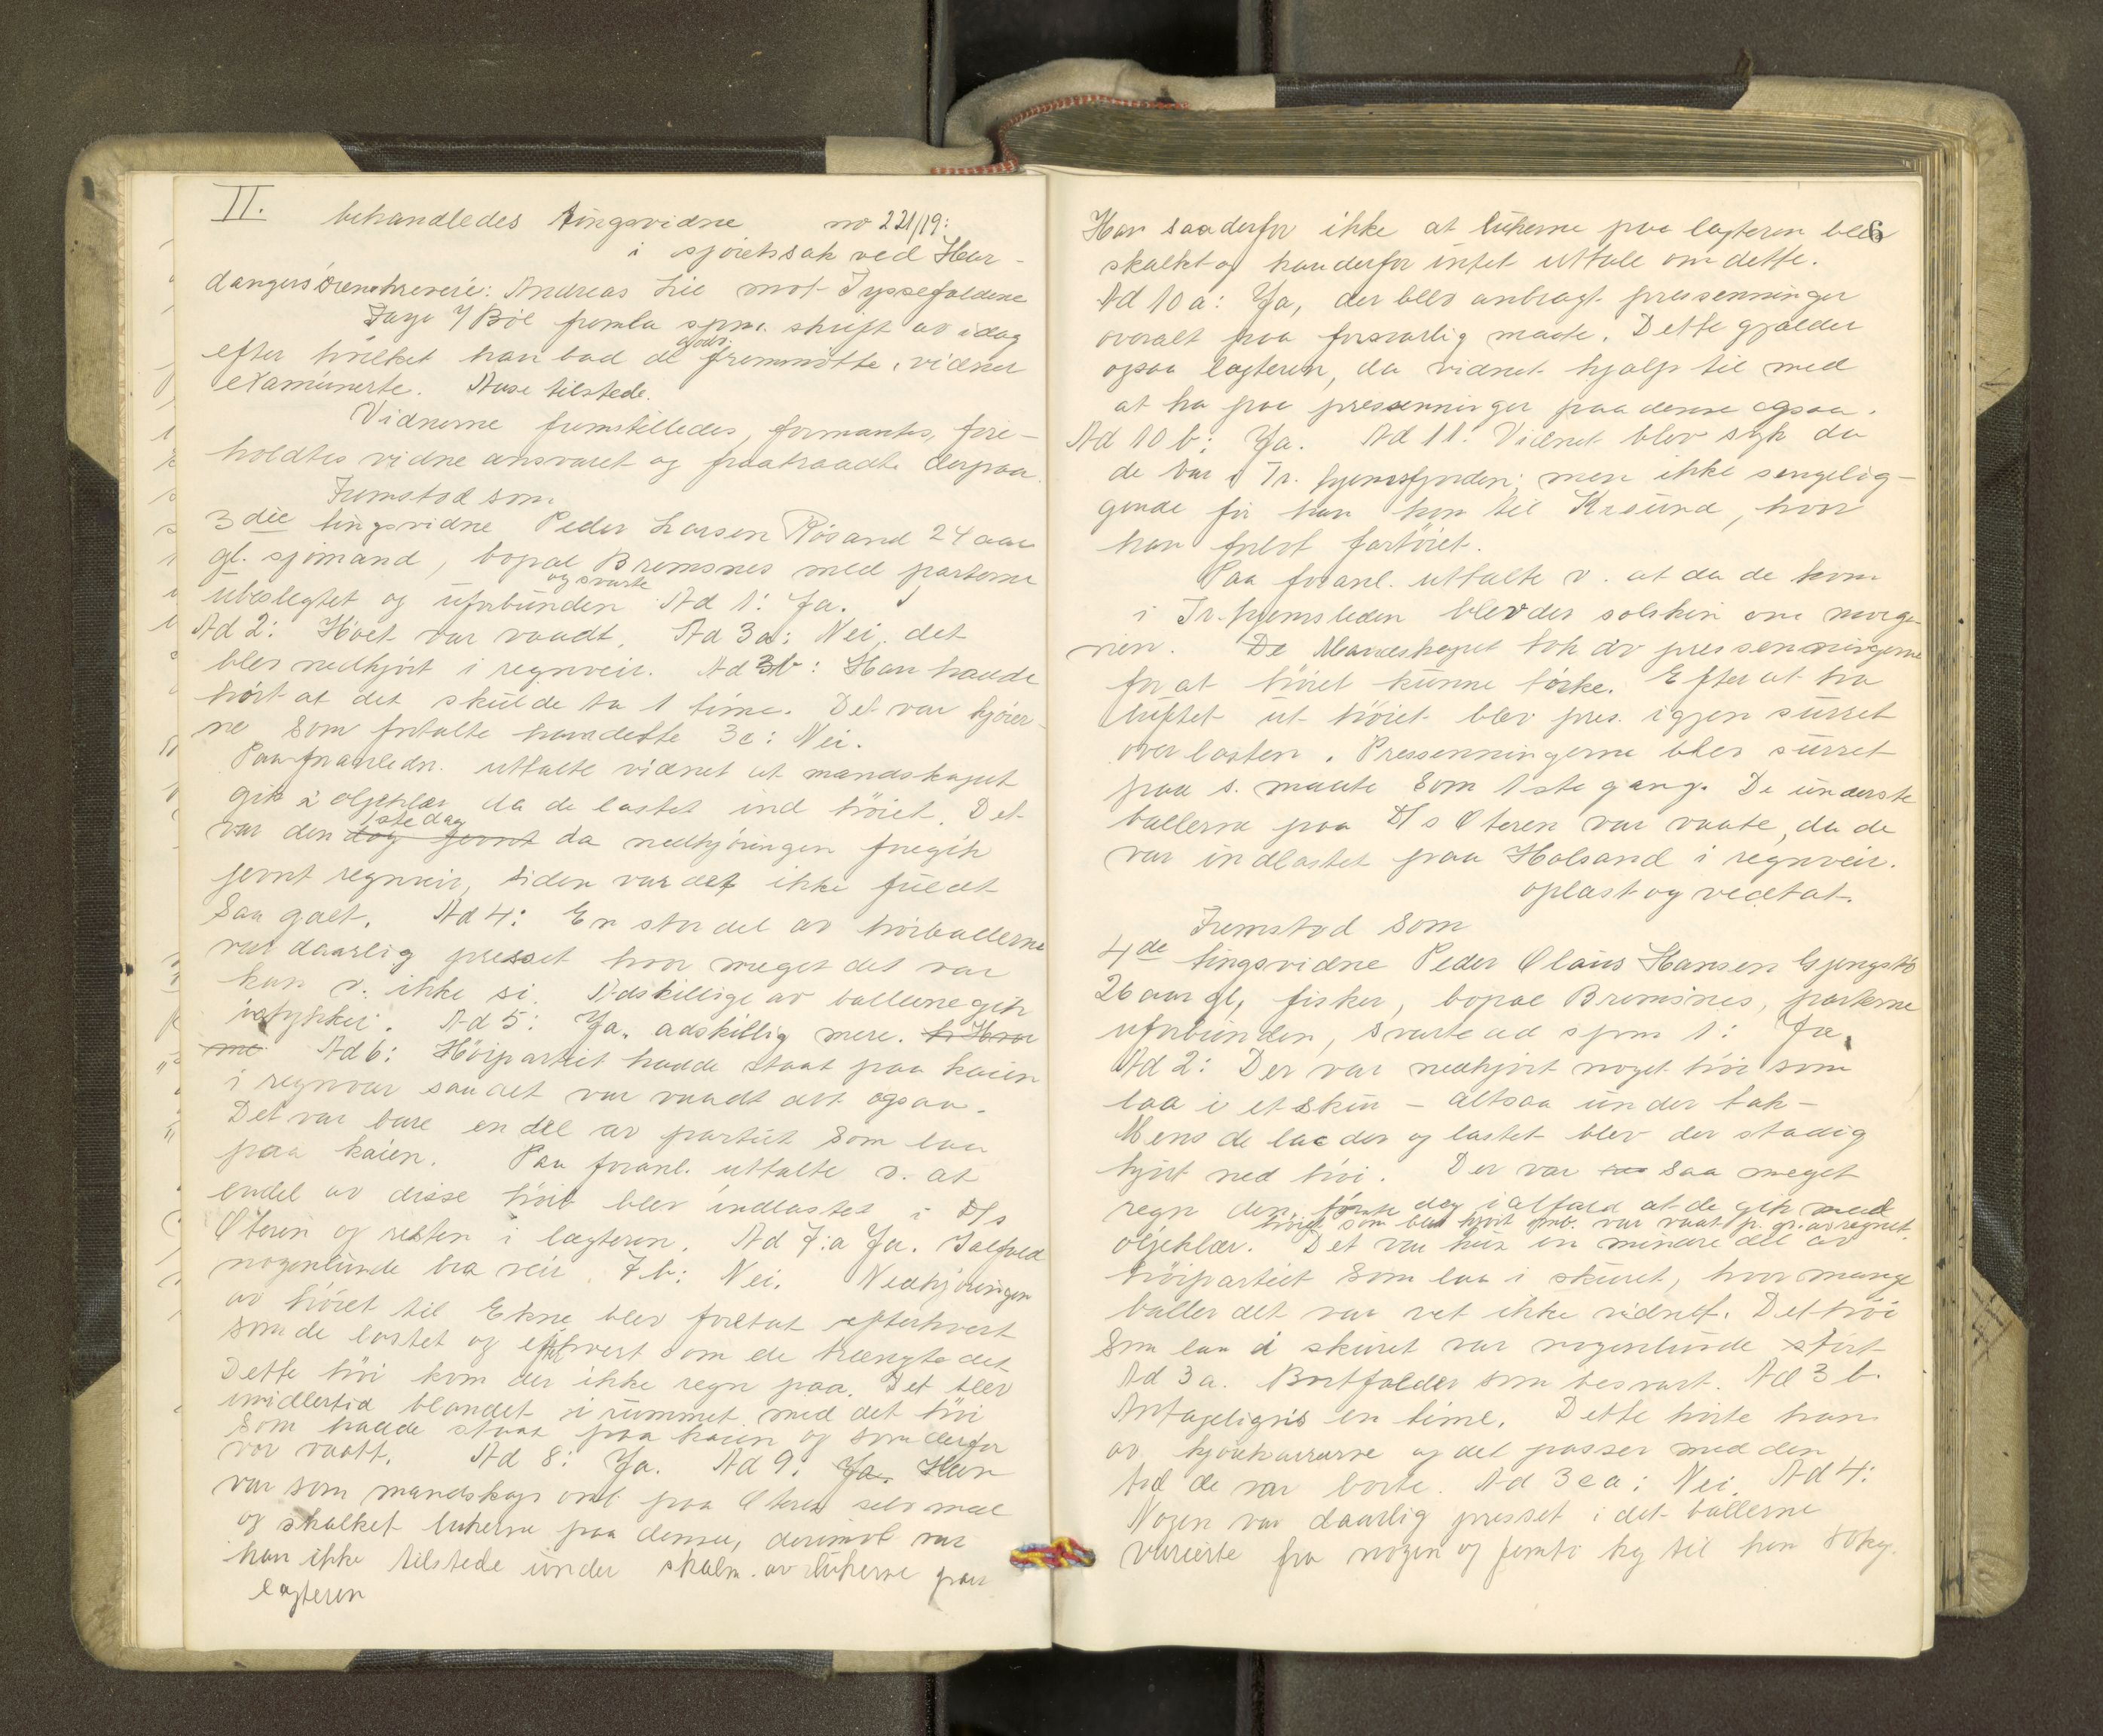 II. behandledes tingsvidne no 221/19:
i sjøretssak ved Har-
dangers sorenskriveri: Andreas Lie mot Tyssefaldene
Faye f/ Boe fremla spm. skrift av idag
efter hvilket han bad de godv. fremmøtte vidner
examinerte. Aase tilstede.
Vidnerne fremstilledes, formantes, fore-
holdtes vidneansvaret og fratraadte derpaa.
Fremstod som
3die tingsvidne Peder Larsen Røsand 24 aar
gl. sjømand, bopæl Bremsnes med parterne
ubeslegtet og uforbunden og svarte Ad 1: Ja.
Ad 2: Høiet var vaadt. Ad 3a: Nei, det
blev nedkjørt i regnveir. Ad 3b: Han hadde
hørt at det skulde ta 1 time. Det var kjører-
ne som fortalte ham dette 3c: Nei.
Paa foranledn. uttalte vidnet at mandskapet
gik i oljeklær da de lastet ind høiet. Det
var den dag jevnt 1ste dag da nedkjøringen foregik
jevnt regnveir, siden var det ikke fuldt
saa galt. Ad 4: En stor del av høiballerne
var daarlig presset hvor meget det var
kan v. ikke si. Adskillige av ballerne gik
istykker. Ad 5: Ja, adskillig mere.
Ad 6: Høipartiet hadde staat paa kaien
i regnvær saa det var vaadt det ogsaa.
Det var bare en del av partiet som laa
paa kaien. Paa foranl. uttalte v. at
endel av disse høi blev indlastet i D/s
Oteren og resten i lægteren. Ad 7:a Ja. Ialfald
nogenlunde bra veir. 7.b: Nei. Nedkjøringen
av høiet til Ekne blev foretat efterhvert
som de lastet og efterhvert som de trængte det
Dette høi kom der ikke regn paa. Det blev
imidlertid blandet i rummet med det høi
som hadde staat paa kaien og som derfor
var vaatt. Ad 8: Ja. Ad 9: Ja. Han
var som mandskap omb. paa Oteren selv med
og skalket lukerne paa denne, derimot var
han ikke tilstede under skalkn. av lukerne paa
lægteren
6
Han saa derfor ikke at lukerne paa lægteren blev
skalket og kan derfor intet uttale om dette.
Ad 10a: Ja, der blev anbragt pressenninger
overalt paa forsvarlig maate. Dette gjælder
ogsaa lægteren, da vidnet hjalp til med
at ha paa pressenninger paa denne ogsaa.
Ad 10b: Ja. Ad 11: Vidnet blev syk da
de var i Tr.hjemsfjorden; men ikke sengelig-
gende før han kom til Krsund, hvor
han forlot fartøiet.
Paa foranl. uttalte v. at da de kom
i Tr.hjemsleden blev der solskin om morge-
nen. De Mandskapet tok av pressenningerne
for at høiet kunne tørke. Efter at ha
luftet ut høiet blev pres. igjen surret
over lasten. Pressenningerne blev surret
paa s. maate som 1ste gang. De underste
ballerne paa D/s Oteren var vaate, da de
var indlastet paa Holsand i regnveir.
oplæst og vedtat.
Fremstod som
4de tingsvidne Peder Olaus Hansen Gjengstø
26 aar gl, fisker, bopæl Bremsnes, parterne
uforbunden, svarte ad spm 1: Ja.
Ad 2: Der var nedkjørt noget høi som
laa i et skur - altsaa under tak -
Mens de laa der og lastet blev der stadig
kjørt ned høi. Der var saa meget
regn den første dag ialfald at de gik med
høiet som blev kjørt omb. var vaat p. gr. av regnet.
oljeklær. Det var kun en mindre del av
høipartiet som laa i skuret, hvor mange
baller det var vet ikke vidnet. Det høi
som laa i skuret var nogenlunde tørt
Ad 3a. Bortfalder som besvart. Ad 3b.
Antageligvis en time. Dette hørte han
av kjørekarrerne og det passer med den
tid de var borte. Ad 3ca: Nei. Ad 4:
Nogen var daarlig presset i det ballerne
varierte fra nogen og femti kg til hen 80 kg.